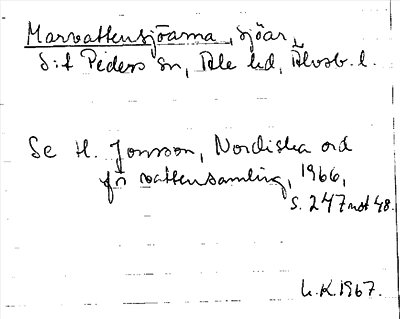 Marvattensjöarna, sjöar,
S:t Peders sn, Ale hd, Älvsb. l.
Se H. Jonsson, Nordiska ord
för vattensamling, 1966,
s. 247 not 48.
L.K. 1967.